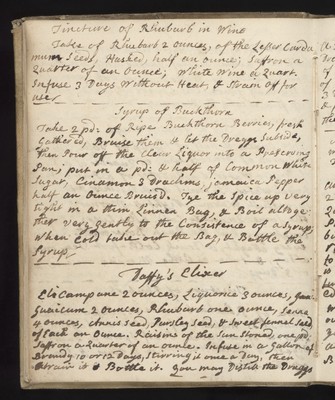 Tincture of Rhubarb in Wine
Take of Rhubarb 2 ounces, of the Lesser Carda
mum Seeds, Husked, half an ounce; Saffron a
Quarter of an Ounce; White Wine a Quart.
Infuse 3 Days Without Heat, & Strain off for
use
Syrup of Buckthorn
Take 2 pd: of Ripe Buckthorn Berries, fresh
Gathered, Bruise them & let the Dreggs Subside,
then Pour off the Clear Liquor into a Preserving
Pan, put in a pd: & half of Common White
Sugar, Cinamon 3 Drachms, Jamaica Pepper
half an Ounce Bruisd. Tye the Spice up very
tight in a thin Linnen Bag, & Boil altoge
ther very gently to the Consistence of a Syrup,
When Cold take out the Bag, & Bottle the
Syrup
Daffy's Elixer
Elicampane 2 ounces, Liquorice 3 ounces,
Guaicum 2 ounces, Rhubarb one Ounce, Senna
4 ounces, Annis Seed, Parsley Seed, & Sweet fennel Seed
of Each an Ounce. Raisins of the Sun Stoned, one pd.
Saffron a Quarter of an ounce. Infuse in a Gallon of
Brandy 10 or 12 Days, Stirring it once a Day, then
Strain it & Bottle it. You may Distill the Druggs